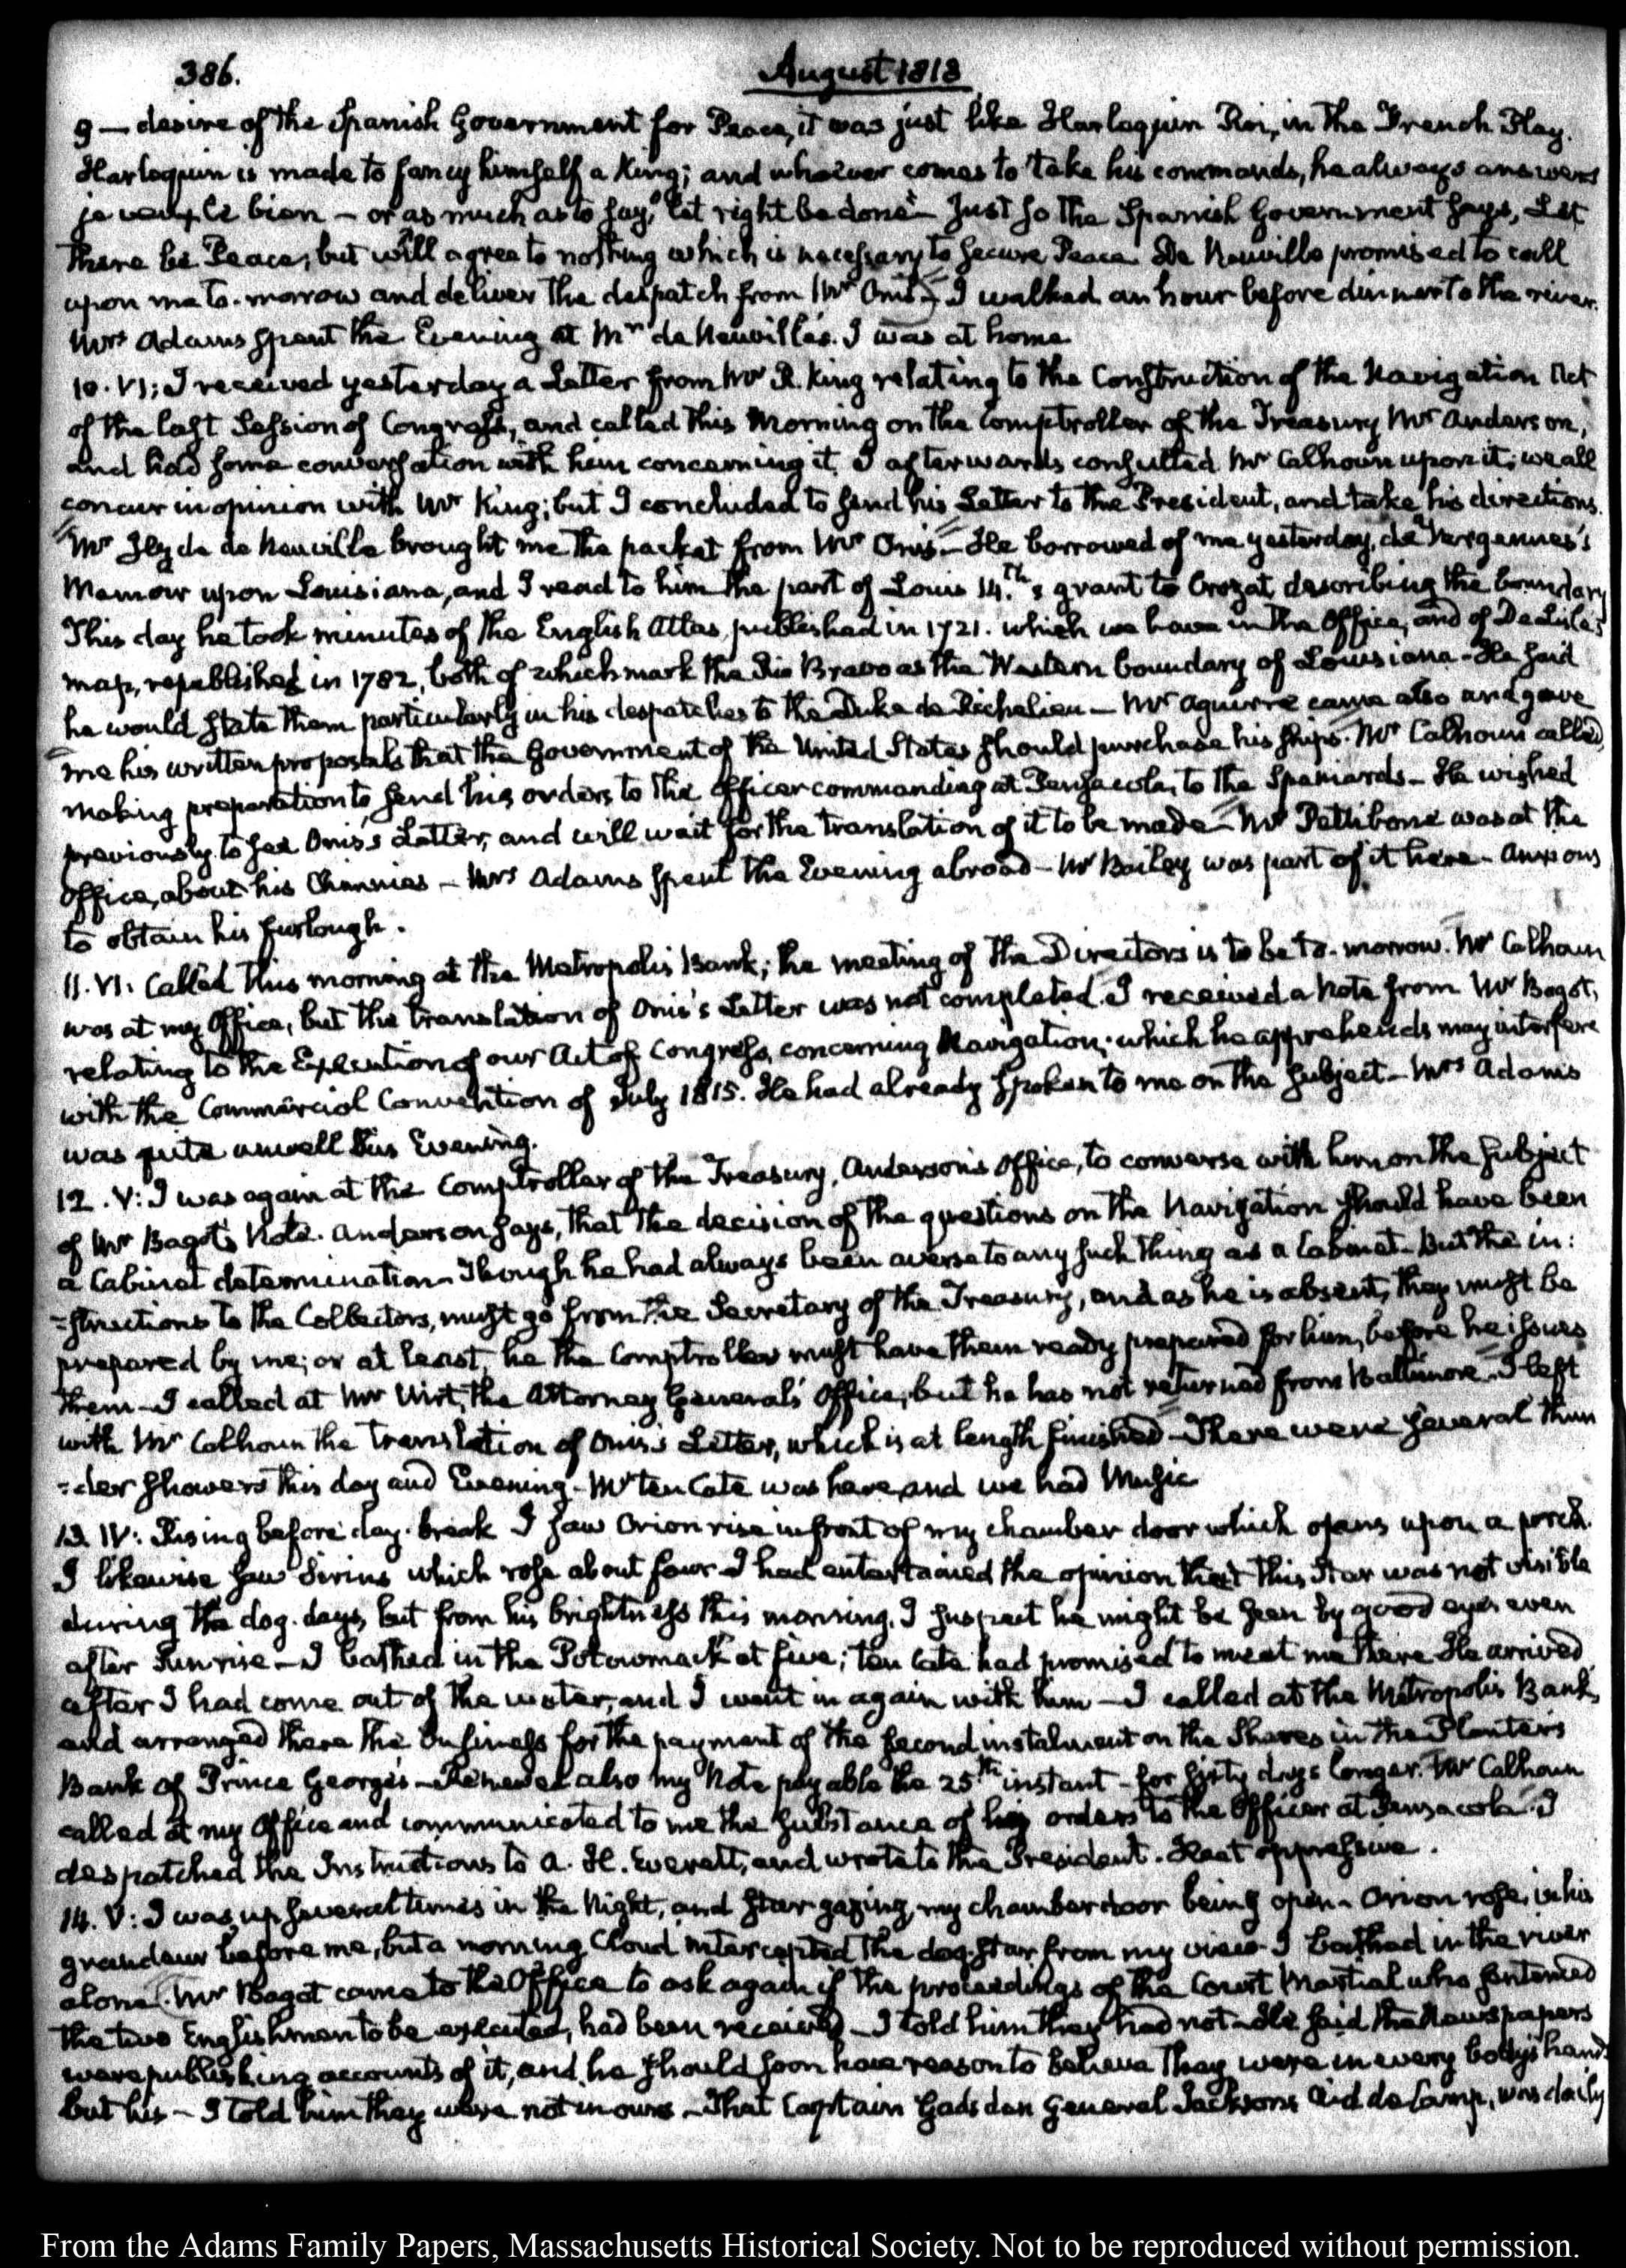 386.
August 1818
9 — desire of the Spanish Government for Peace, it was just like Harlequin Roi, in the French Play.
Harlequin is made to fancy himself a King; and whoever comes to take his commands, he always answers
je veux le bien — or as much as to say, "let right be done" — Just so the Spanish Government says, Let
there be Peace, but will agree to nothing which is necessary to secure Peace. De Neuville promised to call
upon me to-morrow and deliver the despatch from Mr Onis — I walked an hour before dinner to the river.
Mrs Adams spent the Evening at Mrs de Neuville's. I was at home.
10. VI: I received yesterday a Letter from Mr R. King relating to the Construction of the Navigation Act
of the last Session of Congress, and called this Morning on the Comptroller of the Treasury Mr Anderson,
and had some conversation with him concerning it. I afterwards consulted Mr Calhoun upon it; we all
concur in opinion with Mr King; but I concluded to send his Letter to the President, and take his directions.
Mr Hyde de Neuville brought me the packet from Mr Onis — He borrowed of me yesterday, de Vergennes's
Memoir upon Louisiana, and I read to him the part of Louis 14.th's grant to Crozat describing the boundary
This day he took minutes of the English Atlas, published in 1721. which we have in the Office, and of De Lisle's
map, republished in 1782, both of which mark the Rio Bravo as the Western boundary of Louisiana — He said
he would state them particularly in his despatches to the Duke de Richelieu — Mr Aguirre came also and gave
me his written proposals that the Government of the United States should purchase his ships. Mr Calhoun called,
making preparation to send his orders to the Officer commanding at Pensacola, to the Spaniards — He wished
previously to see Onis's Letter, and will wait for the translation of it to be made — Mr Pettibone was at the
Office, about his Channies — Mrs Adams spent the Evening abroad — Mr Bailey was part of it here — anxious
to obtain his furlough.
11. VI: Called this morning at the Metropolis Bank; the meeting of the Directors is to be to-morrow. Mr Calhoun
was at my Office, but the translation of Onis's Letter was not completed. I received a Note from Mr Bagot,
relating to the Execution of our Act of Congress, concerning Navigation; which he apprehends may interfere
with the Commercial Convention of July 1815. He had already spoken to me on the subject — Mrs Adams
was quite unwell this Evening.
12. V: I was again at the Comptroller of the Treasury, Anderson's Office, to converse with him on the subject
of Mr Bagot's Note. Anderson says, that the decision of the questions on the Navigation should have been
a Cabinet determination — Though he had always been averse to any such thing as a Cabinet — But the in:
=structions to the Collectors, must go from the Secretary of the Treasury, and as he is absent, they must be
prepared by me; or at least, he the Comptroller must have them ready prepared for him, before he issues
them — I called at Mr Wirt, the Attorney General's Office, but he has not returned from Baltimore. I left
with Mr Calhoun the translation of Onis's Letter, which is at length finished — There were several thun
=der showers this day and Evening — Mr ten Cate was here, and we had Music
13. IV: Rising before day-break I saw Orion rise in front of my chamber door which opens upon a porch.
I likewise saw Sirius which rose about four — I had entertained the opinion that this Star was not visible
during the dog-days, but from his brightness this morning, I suspect he might be seen by good eyes even
after Sunrise — I bathed in the Potowmack at five; ten Cate had promised to meet me there. He arrived
after I had come out of the water, and I went in again with him — I called at the Metropolis Bank,
and arranged there the business for the payment of the second instalment on the Shares in the Planter's
Bank of Prince George's — Renewed also my Note payable the 25th instant — for sixty days longer. Mr Calhoun
called at my Office and communicated to me the substance of his orders to the Officer at Pensacola. I
despatched the Instructions to A. H. Everett, and wrote to the President. Heat oppressive.
14. V: I was up several times in the Night, and star gazing, my chamber door being open — Orion rose, in his
grandeur before me, but a morning Cloud intercepted the dog-star from my view — I bathed in the river
alone. Mr Bagot came to the Office to ask again if the proceedings of the Court Martial who sentenced
the two Englishmen to be executed, had been received — I told him they had not — He said the Newspapers
were publishing accounts of it, and he should soon have reason to believe they were in every body's hands
but his — I told him they were not in ours — That Captain Gadsden General Jackson's Aid de Camp, was daily
From the Adams Family Papers, Massachusetts Historical Society. Not to be reproduced without permission.